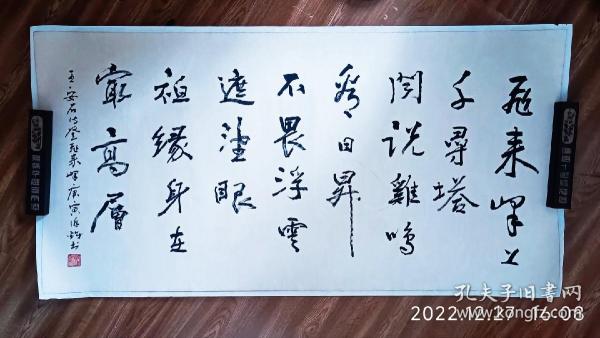 飛来峰上
千尋塔
聞説雞鳴
看日昇
不畏浮雲
遮望眼
祗緣身在
最高層
王安石诗登飛来峰庚寅 书
孔夫子旧書网
www.kongfz.com
2022.12.27 16:08